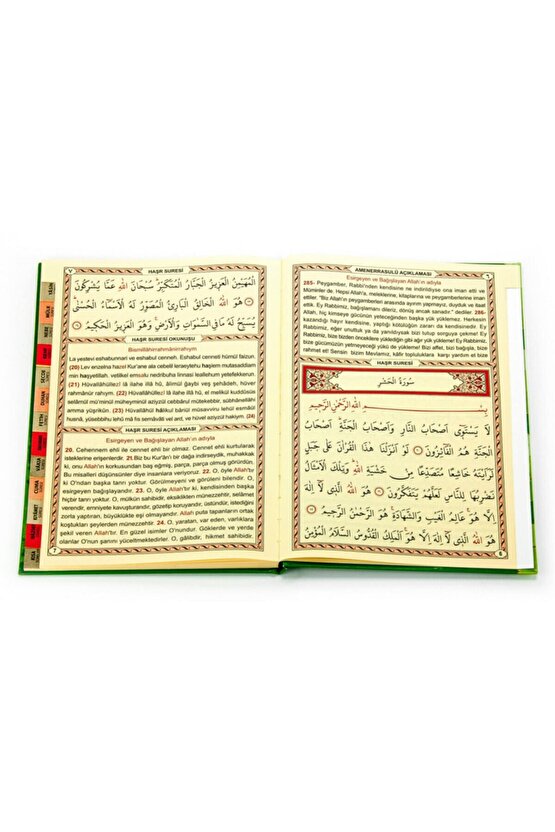 ٦
AMENERRASULÜ AÇIKLAMASI
Esirgeyen ve Bağışlayan Allah'ın adıyla
285- Peygamber, Rabbi'nden kendisine ne indirildiyse ona iman etti ve
Müminler de. Hepsi Allah'a, meleklerine, kitaplarına ve peygamberlerine iman
ettiler. "Biz Allah'ın peygamberleri arasında ayırım yapmayız, duyduk ve itaat
ettik. Ey Rabbimiz, bağışlamanı dileriz, dönüş ancak sanadır." dediler. 286-
Allah, hiç kimseye gücünün yeteceğinden başka yük yüklemez. Herkesin
kazandığı hayır kendisine, yaptığı kötülüğün zararı da kendisinedir. Ey
Rabbimiz, eğer unuttuk ya da yanıldıysak bizi tutup sorguya çekme! Ey
Rabbimiz, bize bizden öncekilere yüklediğin gibi ağır yük yükleme! Ey Rabbimiz,
bize gücümüzün yetmeyeceği yükü de yükleme! Bizi affet, bizi bağışla, bize
rahmet et! Sensin bizim Mevlamız, kâfir topluluklara karşı yardım et bize
HAŞR SURESİ
سُورَةُ الْحَشْرِ
بِسْمِ اللهِ الرَّحْمٰنِ الرَّحِيمِ
لَا يَسْتَوِٓي اَصْحَابُ النَّارِ وَاَصْحَابُ الْجَنَّةِ اَصْحَابُ
الْجَنَّةِ هُمُ الْفَٓائِزُونَ لَوْ اَنْزَلْنَا هٰذَا الْقُرْاٰنَ عَلٰى جَبَلٍ
لَرَاَيْتَهُ خَاشِعًا مُتَصَدِّعًا مِنْ خَشْيَةِ اللهِ وَتِلْكَ الْاَمْثَالُ
نَضْرِبُهَا لِلنَّاسِ لَعَلَّهُمْ يَتَفَكَّرُونَ هُوَ اللهُ الَّذِي لَٓا اِلٰهَ
اِلَّا هُوَ عَالِمُ الْغَيْبِ وَالشَّهَادَةِ هُوَ الرَّحْمٰنُ الرَّحِيمُ
هُوَ اللهُ الَّذِي لَٓا اِلٰهَ اِلَّا هُوَ اَلْمَلِكُ الْقُدُّوسُ السَّلَامُ الْمُؤْمِنُ
6
٧
HAŞR SURESİ
الْمُهَيْمِنُ الْعَزِيزُ الْجَبَّارُ الْمُتَكَبِّرُ سُبْحَانَ اللهِ عَمَّا يُشْرِكُونَ
هُوَ اللهُ الْخَالِقُ الْبَارِئُ الْمُصَوِّرُ لَهُ الْاَسْمَٓاءُ الْحُسْنٰى
يُسَبِّحُ لَهُ مَا فِي السَّمٰوَاتِ وَالْاَرْضِ وَهُوَ الْعَزِيزُ الْحَكِيمُ
HAŞR SURESİ OKUNUŞU
Bismillâhirrahmânirrahiym
La yestevi eshabunnari ve eshabul cenneh. Eshabul cenneti hümül faizun.
(20) Lev enzelna hazel Kur'ane ala cebelil leraeytehu haşiem mutasaddiam
min haşyetillah. vetilkel emsalu nedribuha linnasi leallehum yetefekkerun
(21) Hüvallâhüllezi lâ ilahe illâ hû, âlimül ğaybi veş şehâdeti, hüver
rahmânür rahıym. (22) Hüvallâhüllezi lâ ilahe illâ hû, el melikül kuddûsüs
selâmül mü'minül müheyminül aziyzül cebbârul mütekebbir, sübhânellâhi
amma yüşrikûn. (23) Hüvallâhül hâlikul bâriül müsavviru lehül esmâül
husnâ, yüsebbihu lehû mâ fis semâvâti vel ard, ve hüvel aziyzül hakiym. (24)
HAŞR SURESİ AÇIKLAMASI
Esirgeyen ve Bağışlayan Allah'ın adıyla
20. Cehennem ehli ile cennet ehli bir olmaz. Cennet ehli kurtularak
isteklerine erişenlerdir. 21.Biz bu Kur'ân'ı bir dağa indirseydik, muhakkak
ki, onu Allah'ın korkusundan baş eğmiş, parça, parça olmuş görürdün.
Bu misalleri düşünsünler diye insanlara veriyoruz. 22. O, öyle Allah'tır
ki O'ndan başka tanrı yoktur. Görülmeyeni ve görüleni bilendir. O,
esirgeyen bağışlayandır. 23. O, öyle Allah'tır ki, kendisinden başka
hiçbir tanrı yoktur. O, mülkün sahibidir, eksiklikten münezzehtir, selâmet
verendir, emniyete kavuşturandır, gözetip koruyandır, üstündür, istediğini
zorla yaptıran, büyüklükte eşi olmayandır. Allah puta tapanların ortak
koştukları şeylerden münezzehtir. 24. O, yaratan, var eden, varlıklara
şekil veren Allah'tır. En güzel isimler O'nundur. Göklerde ve yerde
olanlar O'nun şanını yüceltmektedirler. O, gâlibdir, hikmet sahibidir,
7
YÂSİN
MÜLK
NEBE
SECDE
DUHAN
FETİH
VÂKIA
CUMA